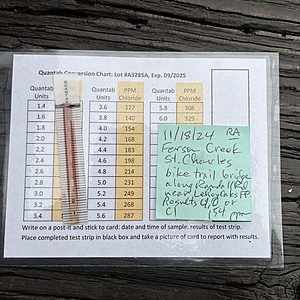 Quantab Conversion Chart: Lot #A3285A, Exp. 09/2025
Quantab Units PPM Chloride Quantab Units PPM Chloride Quantab Units PPM Chloride
1.4 3.6 127 5.8 308
1.6 3.8 140 6.0 329
1.8 4.0 154
2.0 4.2 168
2.2 4.4 183
2.4 4.6 199
2.6 4.8 213
2.8 5.0 231
3.0 5.2 249
3.2 5.4 268
3.4 5.6 287
11/18/24 RA
Ferson Creek
St. Charles
bike trail bridge
along Randall Rd
near LeRoy Oakes FP
Results 4.0 or
Cl 154 ppm
Write on a post-it and stick to card: date and time of sample, results of test strip.
Place completed test strip in black box and take a picture of card to report with results.